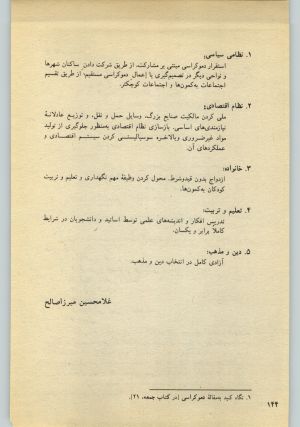 ۱. نظامی سیاسی:
استقرار دموکراسی مبتنی بر مشارکت، از طریق شرکت دادن ساکنان شهرها
و نواحی دیگر در تصمیم‌گیری یا إعمال دموکراسی مستقیم، از طریق تقسیم
اجتماعات به‌کمون‌ها و اجتماعات کوچکتر.
۲. نظام اقتصادی:
ملی کردن مالکیت صنایع بزرگ، وسایل حمل و نقل، و توزیع عادلانهٔ
نیازمندی‌های اساسی. بازسازی نظام اقتصادی به‌منظور جلوگیری از تولید
مواد غیرضروری وبالاخره سوسیالیستی کردن سیستم اقتصادی و
عملکردهای آن.
۳. خانواده:
ازدواج بدون قیدوشرط. محول کردن وظیفهٔ مهم نگهداری و تعلیم و تربیت
کودکان به‌کمون‌ها.
۴. تعلیم و تربیت:
تدریس افکار و اندیشه‌های علمی توسط اساتید و دانشجویان در شرایط
کاملاً برابر و یکسان.
۵. دین و مذهب:
آزادی کامل در انتخاب دین و مذهب.
غلامحسین میرزاصالح
۱. نگاه کنید به‌مقالهٔ دموکراسی (در کتاب جمعه، ۲۱).
۱۴۴